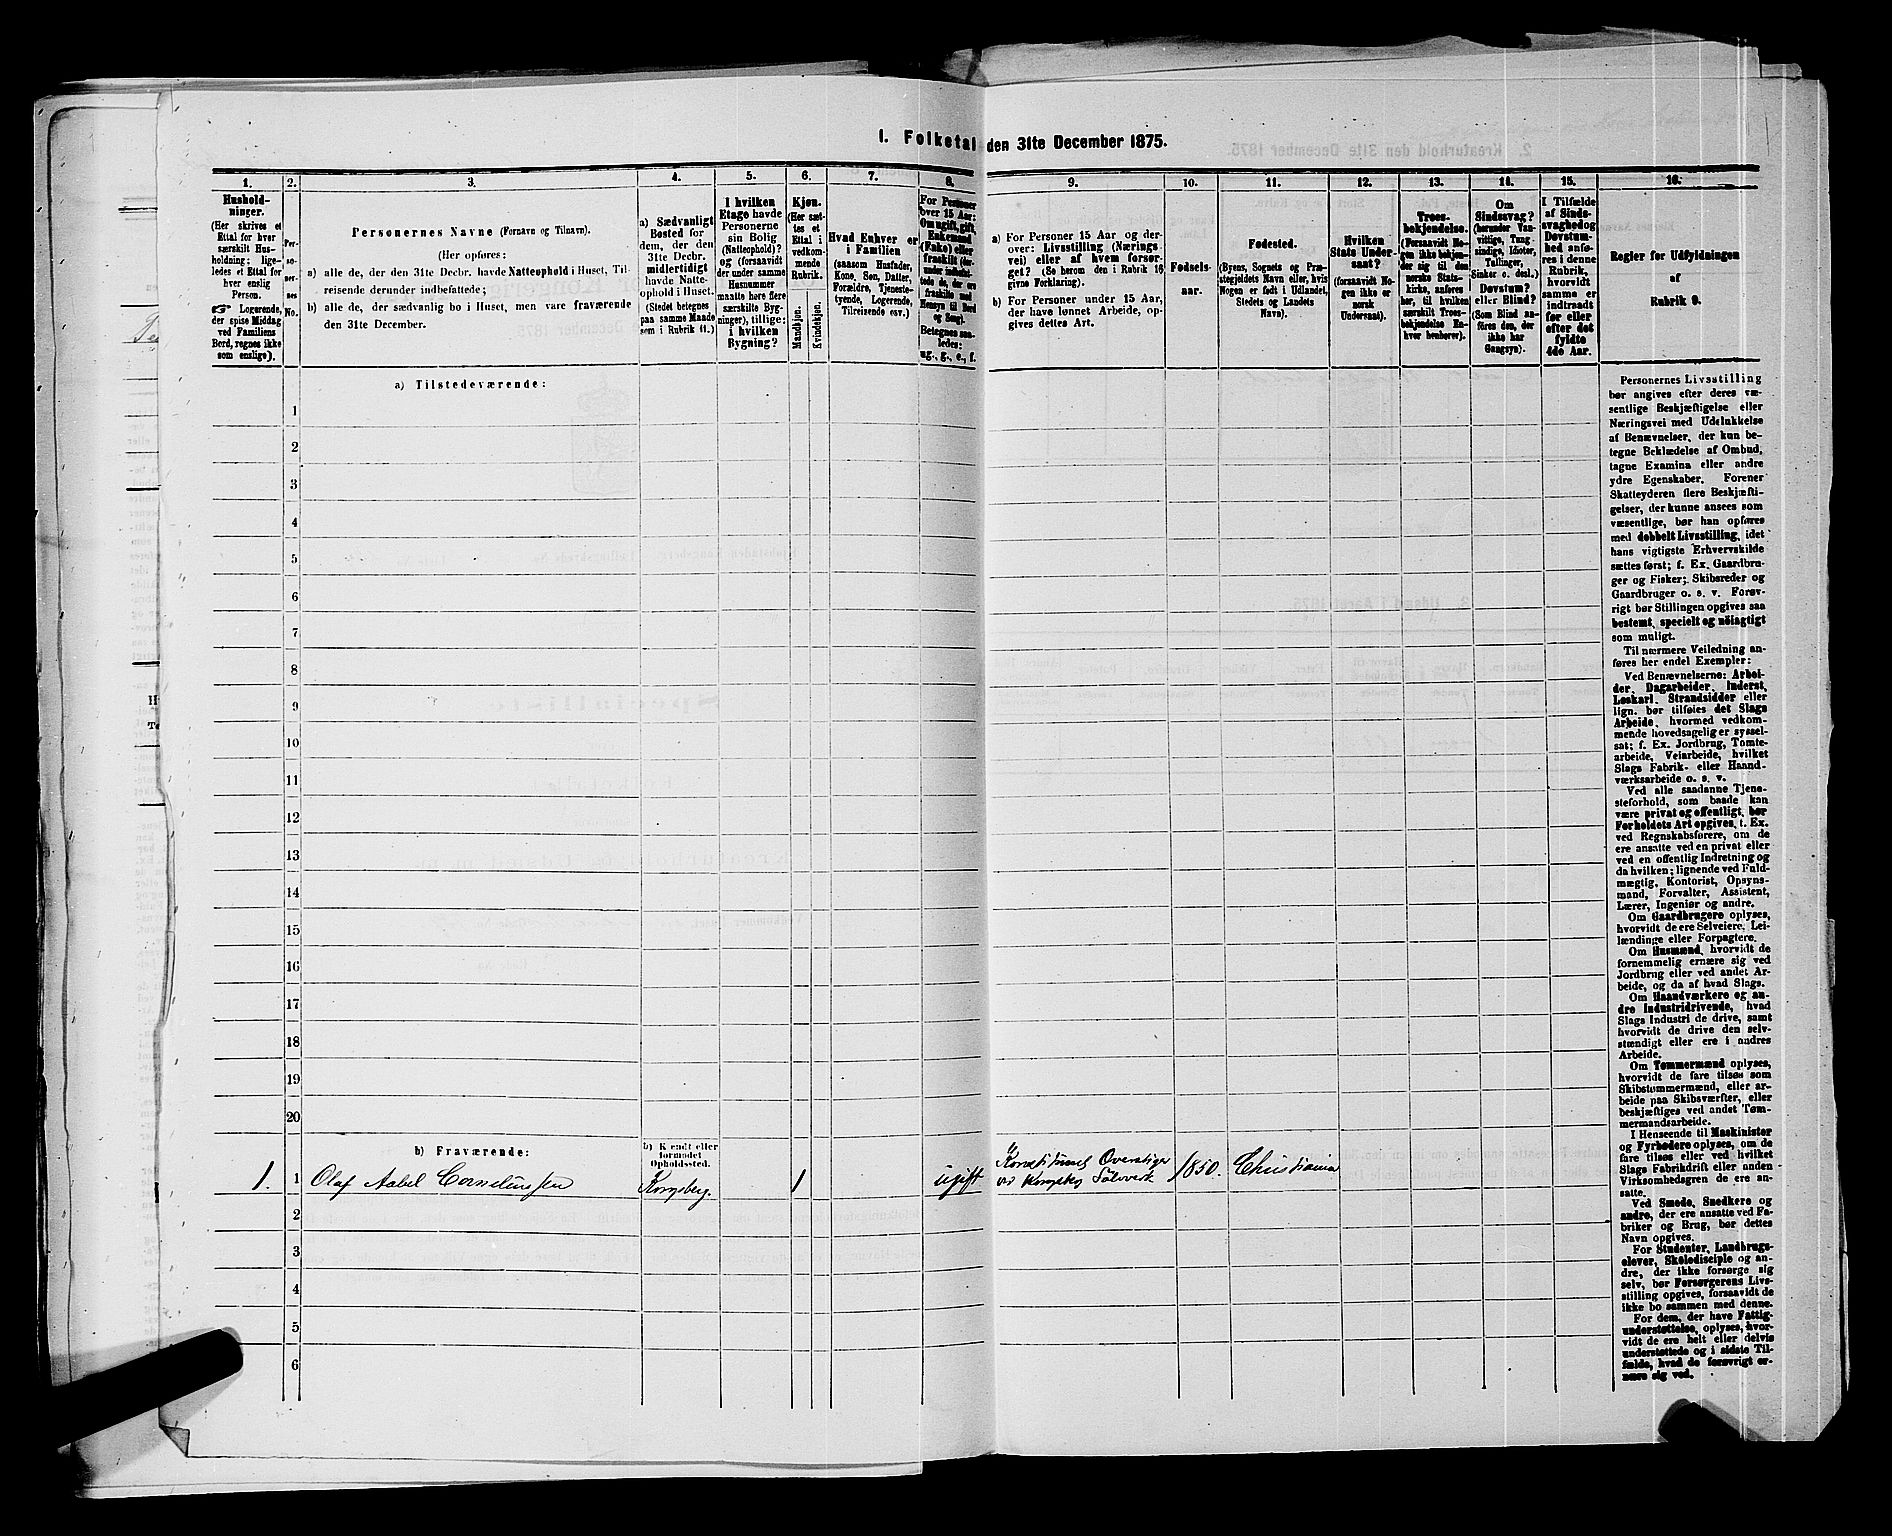 1. Folketal den 31te December 1875.
1.
2.
3.
4.
5.
6.
7.
8.
9.
10.
11.
12.
13.
14.
15.
16.
Hushold-
ninger.
(Her skrives et
Ettal for hver
særskilt Hus-
holdning; lige-
ledes et Ettal for
hver enslig
Person.
☞ Logerende,
der spise Middag
ved Familiens
Bord, regnes ikke
som enslige).
Per-
so-
ner-
nes
No.
Personernes Navne (Fornavn og Tilnavn).
(Her opføres:
a) alle de, der den 31te Decbr. havde Natteophold i Huset, Til-
reisende derunder indbefattede;
b) alle de, der sædvanlig bo i Huset, men vare fraværende
den 31te December.
a) Sædvanligt
Bosted for
dem, der den
31te Decbr.
midlertidigt
havde Natte-
ophold i Huset.
(Stedet betegnes
paa samme Maade
som i Rubrik 11.)
I hvilken
Etage havde
Personerne
sin Bolig
(Natteophold)?
og (forsaavidt
der under samme
Husnummer
maatte høre flere
særskilte Byg-
ninger), tillige:
i hvilken
Bygning?
Kjøn.
(Her sæt-
tes et
Ettal i
vedkom-
mende
Rubrik.
Mandkjøn.
Kvindekjøn.
Hvad Enhver er
i Familien
(saasom Husfader,
Kone, Søn, Datter,
Forældre, Tjeneste-
tyende, Logerende,
Tilreisende osv.)
For Personer
over 15 Aar:
Om ugift, gift,
Enkemand
(Enke) eller
fraskilt (der-
under indbefat-
tede de, der ere
fraskilte med
Hensyn til Bord
og Seng).
Betegnes saa-
ledes:
ug., g., e., f.
a) For Personer 15 Aar og der-
over: Livsstilling (Nærings
vei) eller af hvem forsør-
get? (Se herom den i Rubrik 16
givne Forklaring).
b) For Personer under 15 Aar,
der have lønnet Arbeide, op-
gives dettes Art.
Fødsels-
aar.
Fødested.
(Byens, Sognets og Præ-
stegjeldets Navn eller, hvis
Nogen er født i Udlandet,
Stedets og Landets
Navn).
Hvilken
Stats Under-
saat?
(forsaavidt No-
gen ikke er
norsk
Undersaat).
Troes-
bekjendelse.
(Forsaavidt No-
gen ikke bekjen-
der sig til den
norske Stats-
kirke, anføres
her, til hvilken
særskilt Troes-
bekjendelse En-
hver henhører).
Om
Sindssvag?
(herunder Van-
vittige, Tung-
sindige, Idioter,
Tullinger,
Sinker o. desl.)
Døvstum?
eller Blind?
(Som Blind an-
føres den, der
ikke har
Gangsyn).
I Tilfælde
af Sinds-
svaghed og
Døvstum-
hed anfø-
res i denne
Rubrik,
hvorvidt
samme er
indtraadt
før eller
efter det
fyldte
4de Aar.
Regler for Udfyldningen
af
Rubrik 9.
a) Tilstedeværende:
1
2
3
4
5
6
7
8
9
10
11
12
13
14
15
16
17
18
19
20
b) Fraværende:
b) Kjendt eller
formodet
Opholdssted.
1. 1 Olaf Aabel Corneliussen Kongsberg. 1 ugift Konstitueret Overstiger
ved Kongsberg Sølvverk 1850. Christiania
2
3
4
5
6
Personernes Livsstilling
bør angives efter deres væ-
sentlige Beskjæftigelse eller
Næringsvei med Udelukkelse
af Benævnelser, der kun be-
tegne Beklædelse af Ombud,
tagne Examina eller andre
ydre Egenskaber. Forener
Skatteyderen flere Beskjæfti-
gelser, der kunne ansees som
væsentlige, bør han opføres
med dobbelt Livsstilling, idet
hans vigtigste Erhvervskilde
sættes først; f. Ex. Gaardbru-
ger og Fisker; Skibsreder og
Gaardbruger o. s. v. Forøv-
rigt bør Stillingen opgives saa
bestemt, specielt og nøiagtigt
som muligt.
Til nærmere Veiledning an-
føres her endel Exempler:
Ved Benævnelserne: Arbei-
der, Dagarbeider, Inderst,
Løskarl, Strandsidder eller
lign. bør tilføies det Slags
Arbeide, hvormed vedkom-
mende hovedsagelig er syssel-
sat; f. Ex. Jordbrug, Tomte-
arbeide, Veiarbeide, hvilket
Slags Fabrik- eller Haand-
værksarbeide o. s. v.
Ved alle saadanne Tjene-
steforhold, som baade kan
være privat og offentligt, bør
Forholdets Art opgives, t. Ex.
ved Regnskabsførere, om de
ere ansatte ved en privat eller
ved en offentlig Indretning og
da hvilken; lignende ved Fuld-
mægtig, Kontorist, Opsyns-
mand, Forvalter, Assistent,
Lærer, Ingeniør og andre.
Om Gaardbrugere oplyses,
hvorvidt de ere Selveiere, Lei-
lændinge eller Forpagtere.
Om Husmænd, hvorvidt de
fornemmelig ernære sig ved
Jordbrug eller ved andet Ar-
beide, og da af hvad Slags.
Om Haandværkere og an-
dre Industridrivende, hvad
Slags Industri de drive, samt
hvorvidt de drive den selv-
stændigt eller ere i andres
Arbeide.
Om Tømmermænd oplyses,
hvorvidt de fare tilsøs som
Skibstømmermænd, eller ar-
beide paa Skibsværfter, eller
beskjæftiges ved andet Tøm-
mermandsarbeide.
I Henseende til Maskinister
og Fyrbødere oplyses, om de
fare tilsøs eller ved hvilket
Slags Fabrikdrift eller anden
Virksomhedsgren de ere an-
satte.
Ved Smede, Snedkere og
andre, der ere ansatte ved Fa-
briker og Brug, bør dettes
Navn opgives.
For Studenter, Landbrugs-
elever, Skoledisciple og an-
dre, der ikke forsørge sig
selv, bør Forsørgerens Livs-
stilling opgives, forsaavidt de
ikke bo sammen med denne.
For dem, der have Fattig-
understøttelse, oplyses, hvor-
vidt de ere helt eller delvis
understøttede og i sidste Til-
fælde, hvad de forøvrigt er-
nære sig ved.